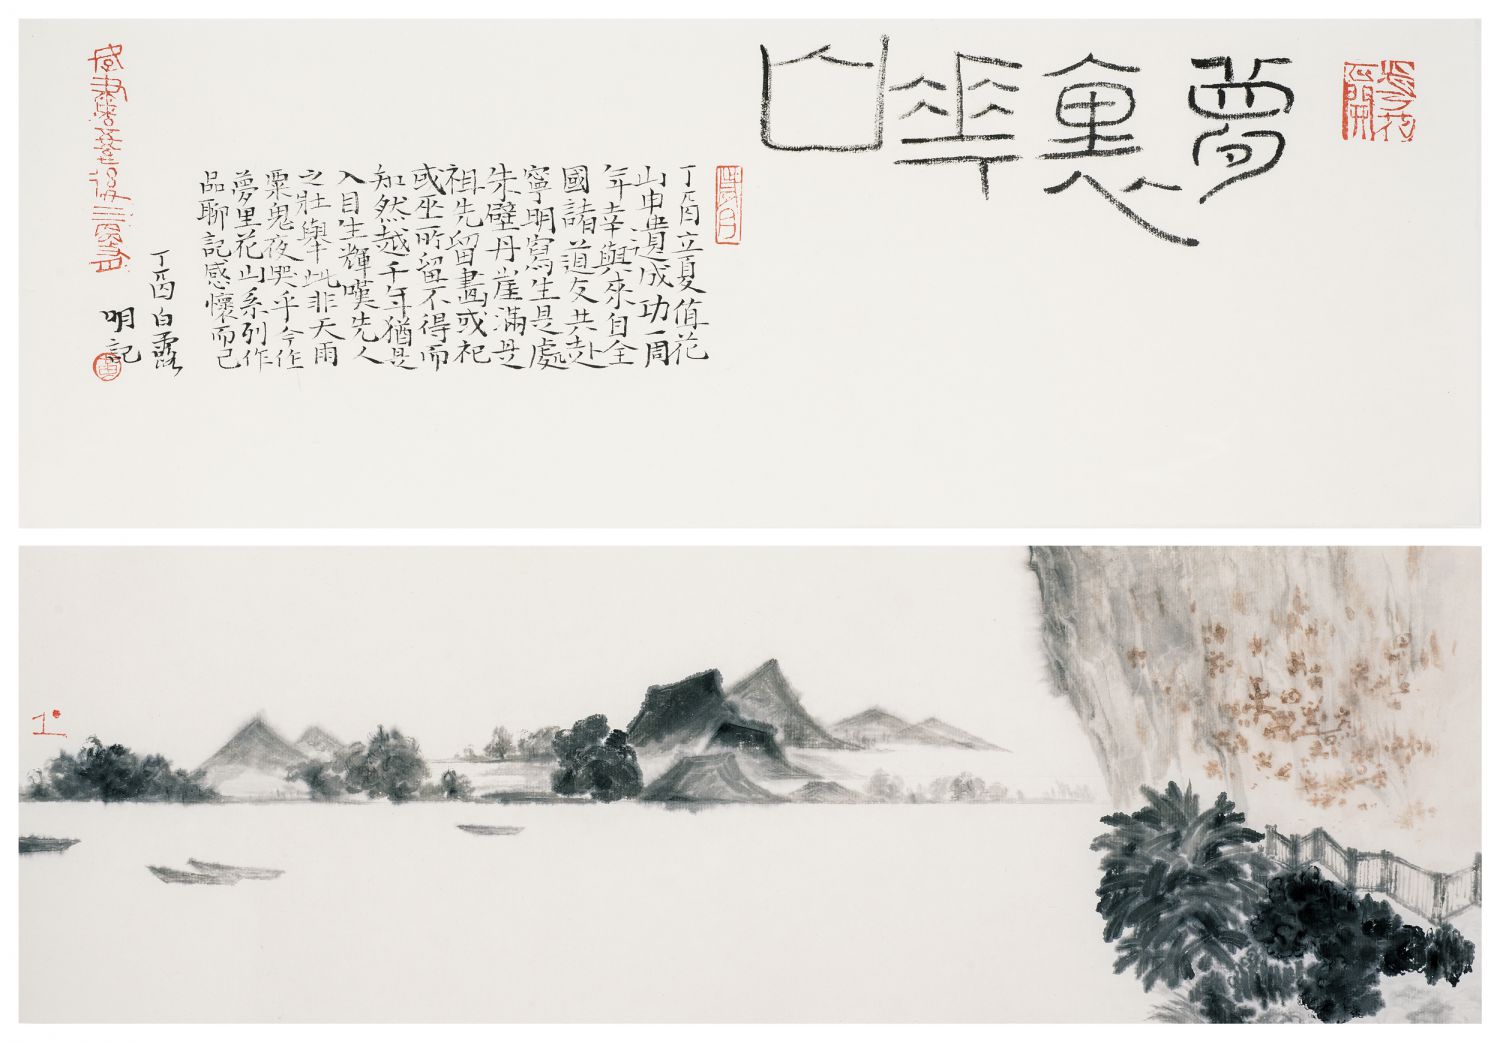 夢裏華山
丁酉立夏值花
山申遺成功一周
年幸與來自全
國諸道友共赴
寧明寫生是處
朱壁丹崖滿是
祖先留畫或祀
或巫所留不得而
知然越千年猶是
入目生輝嘆先人
之壯舉此非天雨
粟鬼夜哭乎今作
夢里花山系列作
品聊記感懷而已
丁酉白露
明記